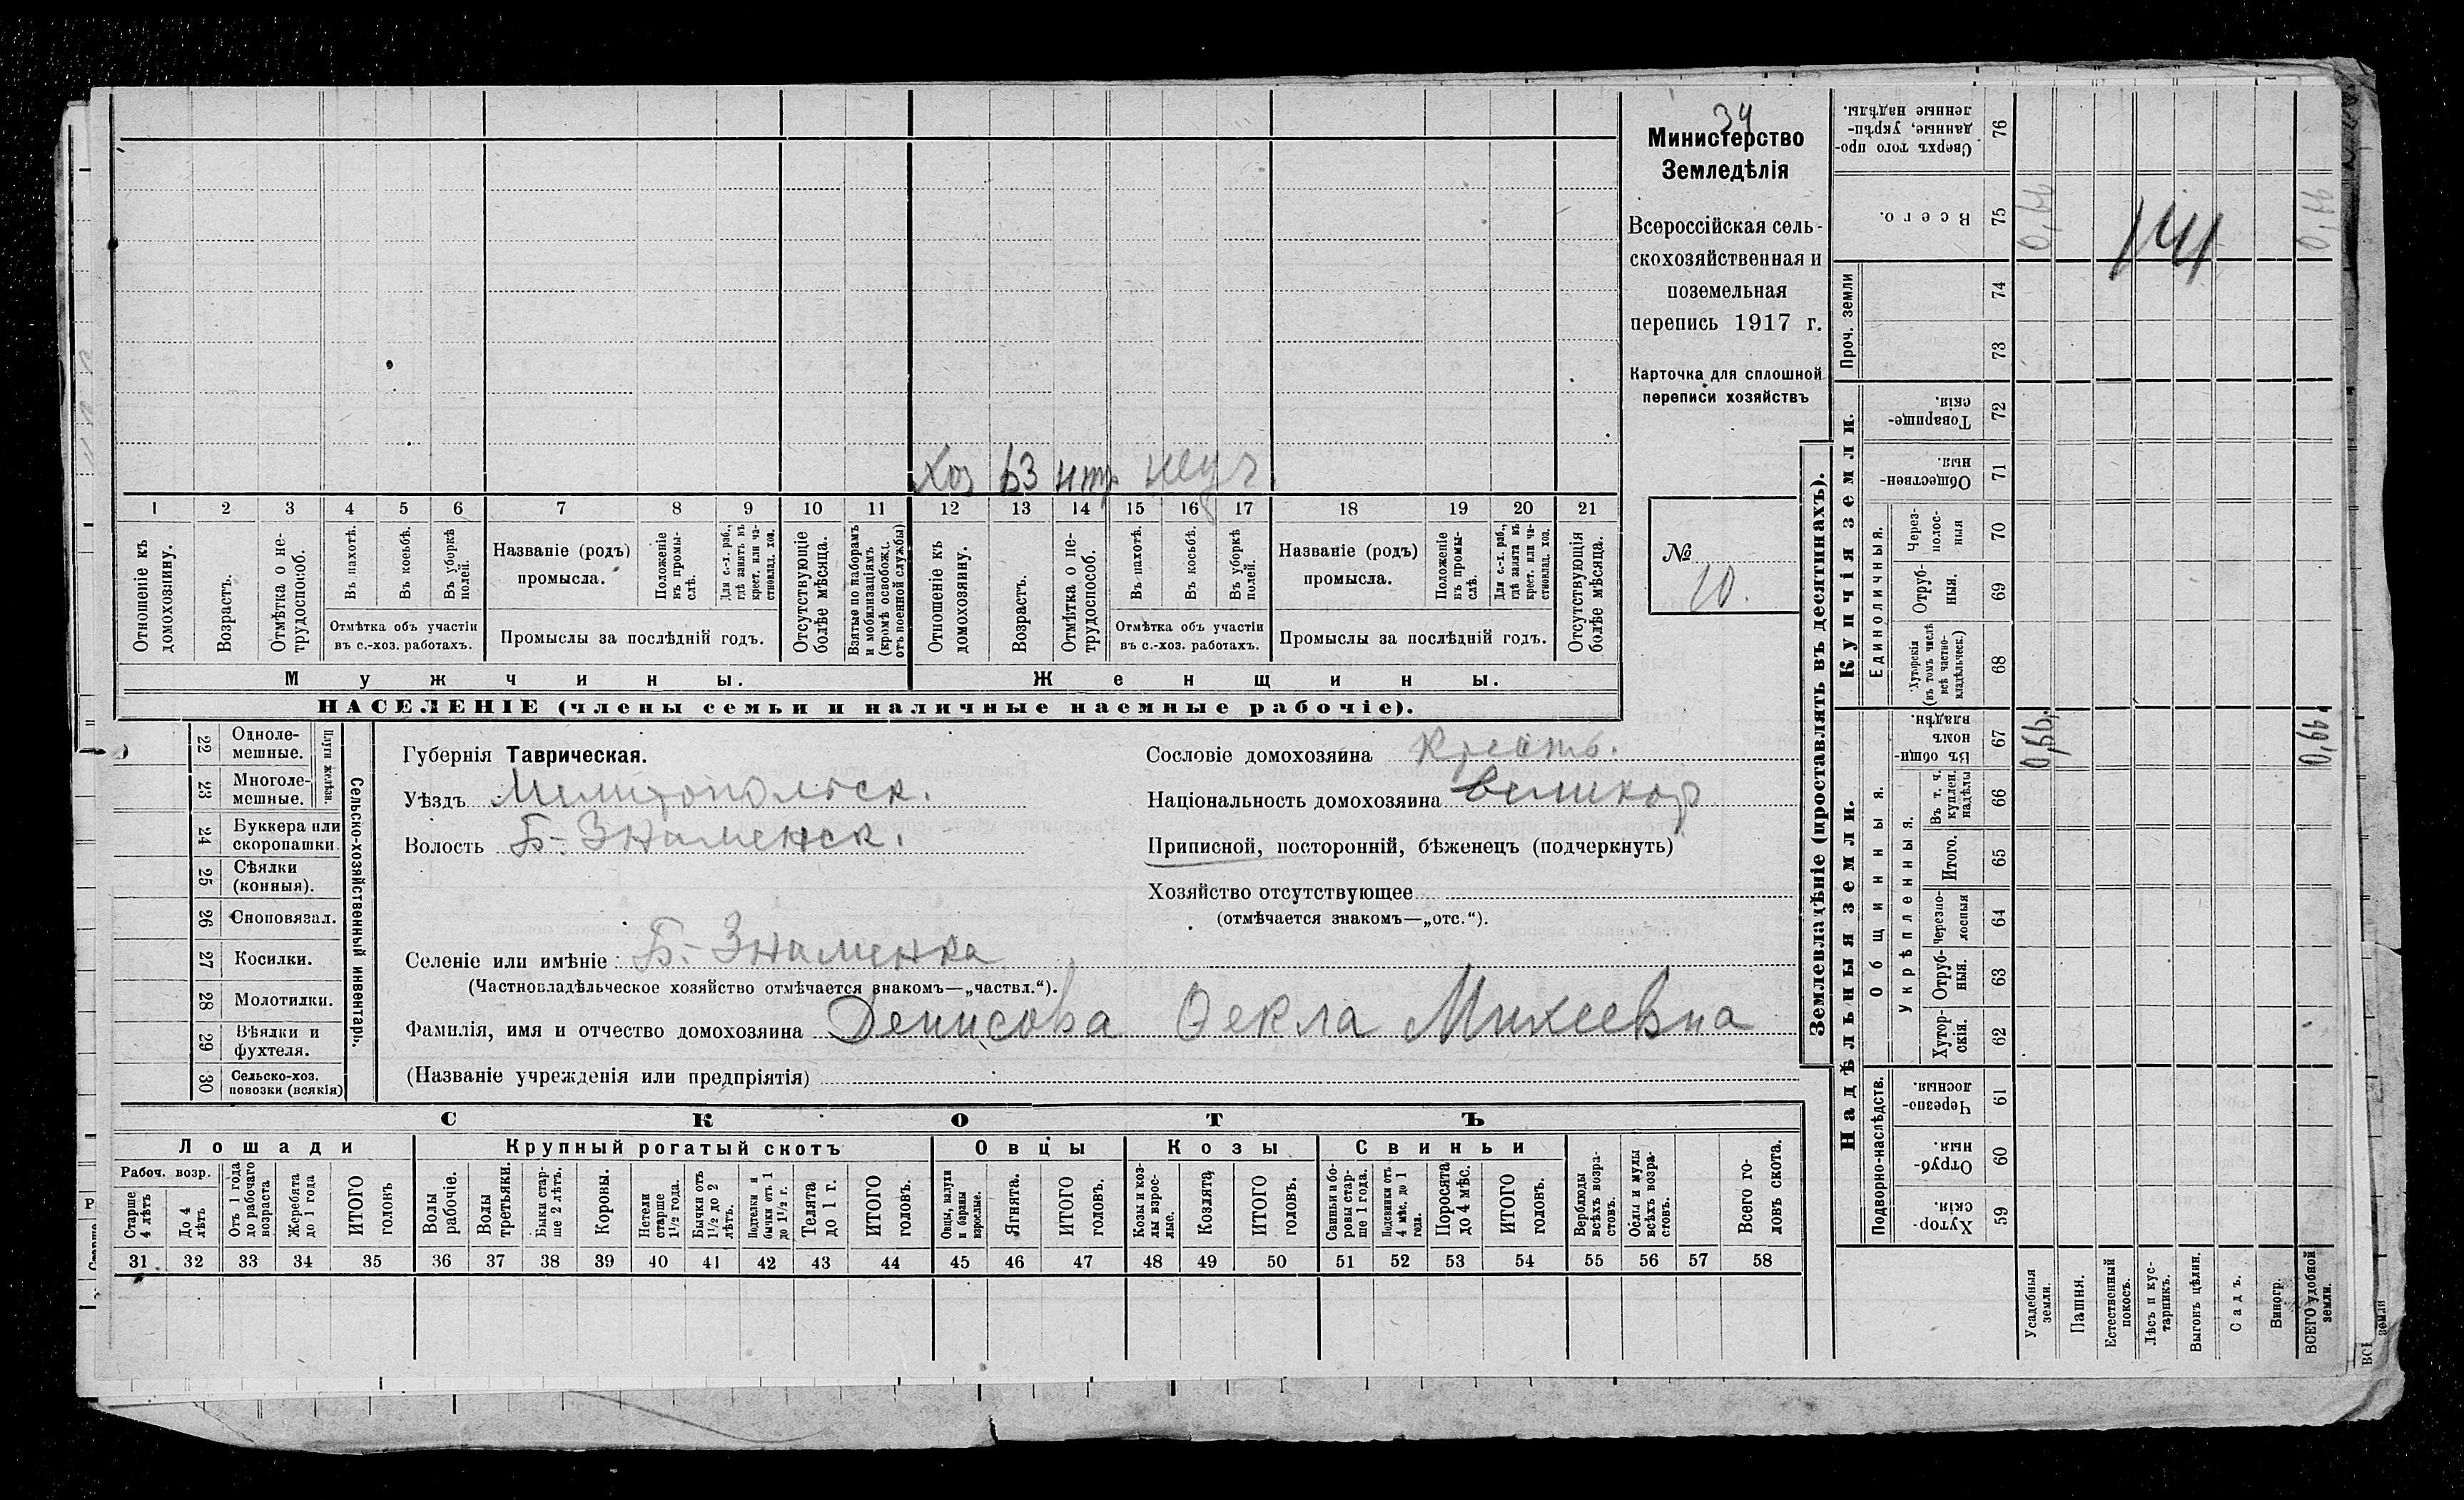 34
Министерство
Земледѣлія
Всероссійская сель-
скохозяйственная и
поземельная
перепись 1917 г.
Карточка для сплошной
переписи хозяйствъ
№
10.
хоз 63 нтр неуч.
1 2 3 4 5 6 7 8 9 10 11 12 13 14 15 16 17 18 19 20 21
Отношеніе къ домохозяину.
Возрастъ.
Отмѣтка о не-трудоспособ.
Въ пахотѣ.
Въ косьбѣ.
Въ уборкѣ полей.
Отмѣтка объ участіи
въ с.-хоз. работахъ.
Названіе (родъ)
промысла.
Положеніе въ промы-слѣ.
Для с.-х. раб., гдѣ занятъ въ крест. или ча-стновлад. хоз.
Промыслы за послѣдній годъ.
Отсутствующіе болѣе мѣсяца.
Взятые по наборамъ и мобилизаціямъ (кромѣ освобожд. отъ военной службы)
Отношеніе къ домохозяину.
Возрастъ.
Отмѣтка о не-трудоспособ.
Въ пахотѣ.
Въ косьбѣ.
Въ уборкѣ полей.
Отмѣтка объ участіи
въ с.-хоз. работахъ.
Названіе (родъ)
промысла.
Положеніе въ промы-слѣ.
Для с.-х. раб., гдѣ занята въ крест. или ча-стновлад. хоз.
Промыслы за послѣдній годъ.
Отсутствующія болѣе мѣсяца.
Мужчины.
Женщины.
НАСЕЛЕНІЕ (члены семьи и наличные наемные рабочіе).
22 Одноле-мешные.
23 Многоле-мешные.
Плуги желѣзн.
24 Буккера или скоропашки.
25 Сѣялки (конныя).
26 Сноповязал.
27 Косилки.
28 Молотилки.
29 Вѣялки и фухтеля.
30 Сельско-хоз. повозки (всякія)
Сельско-хозяйственный инвентарь.
Губернія Таврическая.
Уѣздъ Мелитопольск.
Волость Б.-Знаменск.
Сословіе домохозяина Крестъ.
Національность домохозяина Великор
Приписной, посторонній, бѣженецъ (подчеркнуть)
Хозяйство отсутствующее
(отмѣчается знакомъ—„отс.“).
Селеніе или имѣніе Б.-Знаменка
(Частновладѣльческое хозяйство отмѣчается знакомъ—„частвл.“).
Фамилія, имя и отчество домохозяина Денисова Ѳекла Михеевна
(Названіе учрежденія или предпріятія)
СКОТЪ
Лошади
Крупный рогатый скотъ
Овцы
Козы
Свиньи
Рабоч. возр.
Старше 4 лѣтъ
До 4 лѣтъ
Отъ 1 года до рабочаго возраста
Жеребята до 1 года
ИТОГО головъ
Волы рабочіе.
Волы третьяки.
Быки стар-ше 2 лѣтъ.
Коровы.
Нетели старше 1 1/2 года.
Бычки отъ 1 1/2 до 2 лѣтъ.
Подтелки и бычки отъ 1 до 1 1/2 г.
Телята до 1 г.
ИТОГО головъ.
Овцы, валухи и бараны взрослые.
Ягнята.
ИТОГО головъ.
Козы и коз-лы взрос-лые.
Козлята
ИТОГО головъ.
Свиньи и бо-ровы стар-ше 1 года.
Подсвинки отъ 4 мѣс. до 1 года.
Поросята до 4 мѣс.
ИТОГО головъ.
Верблюды всѣхъ возра-стовъ.
Ослы и мулы всѣхъ возра-стовъ.
Всего го-ловъ скота.
31 32 33 34 35 36 37 38 39 40 41 42 43 44 45 46 47 48 49 50 51 52 53 54 55 56 57 58
Землевладѣніе (проставлять въ десятинахъ).
Надѣльныя земли.
Купчія земли.
Проч. земли
Сверхъ того про-данные, укрѣп-ленные надѣлы. 76
Всего. 75 0,66 0,66
141
74
73
Товарище-скія. 72
Обществен-ныя. 71
Единоличныя.
Через-полос-ныя 70
Отруб-ныя. 69
Хуторскія (въ томъ числѣ всѣ частно-владѣльческ.) 68
Общинныя.
Въ общи-номъ владѣн. 67 0,66 0,66
Укрѣпленныя.
Въ т. ч. куплен. надѣлы 66
Итого. 65
Черезпо-лосныя 64
Отруб-ныя. 63
Хутор-скія. 62
Подворно-наслѣдств.
Черезпо-лосныя. 61
Отруб-ныя. 60
Хутор-скія. 59
Усадебныя земли.
Пашня.
Естественный покосъ.
Лѣсъ и кус-тарникъ.
Выгонъ цѣлин.
Садъ.
Виногр.
ВСЕГО удобной земли.